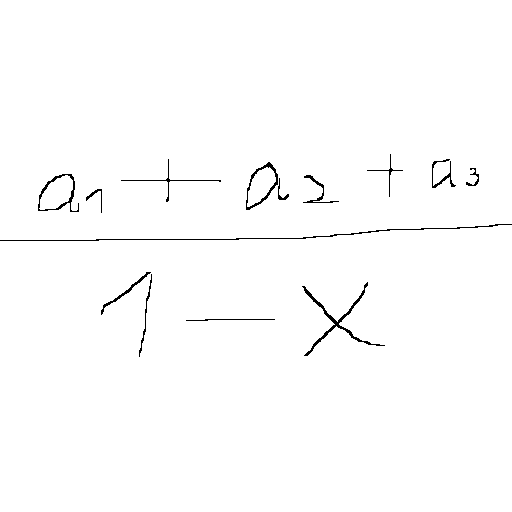 a₁ + a₂ + a₃
1 − x